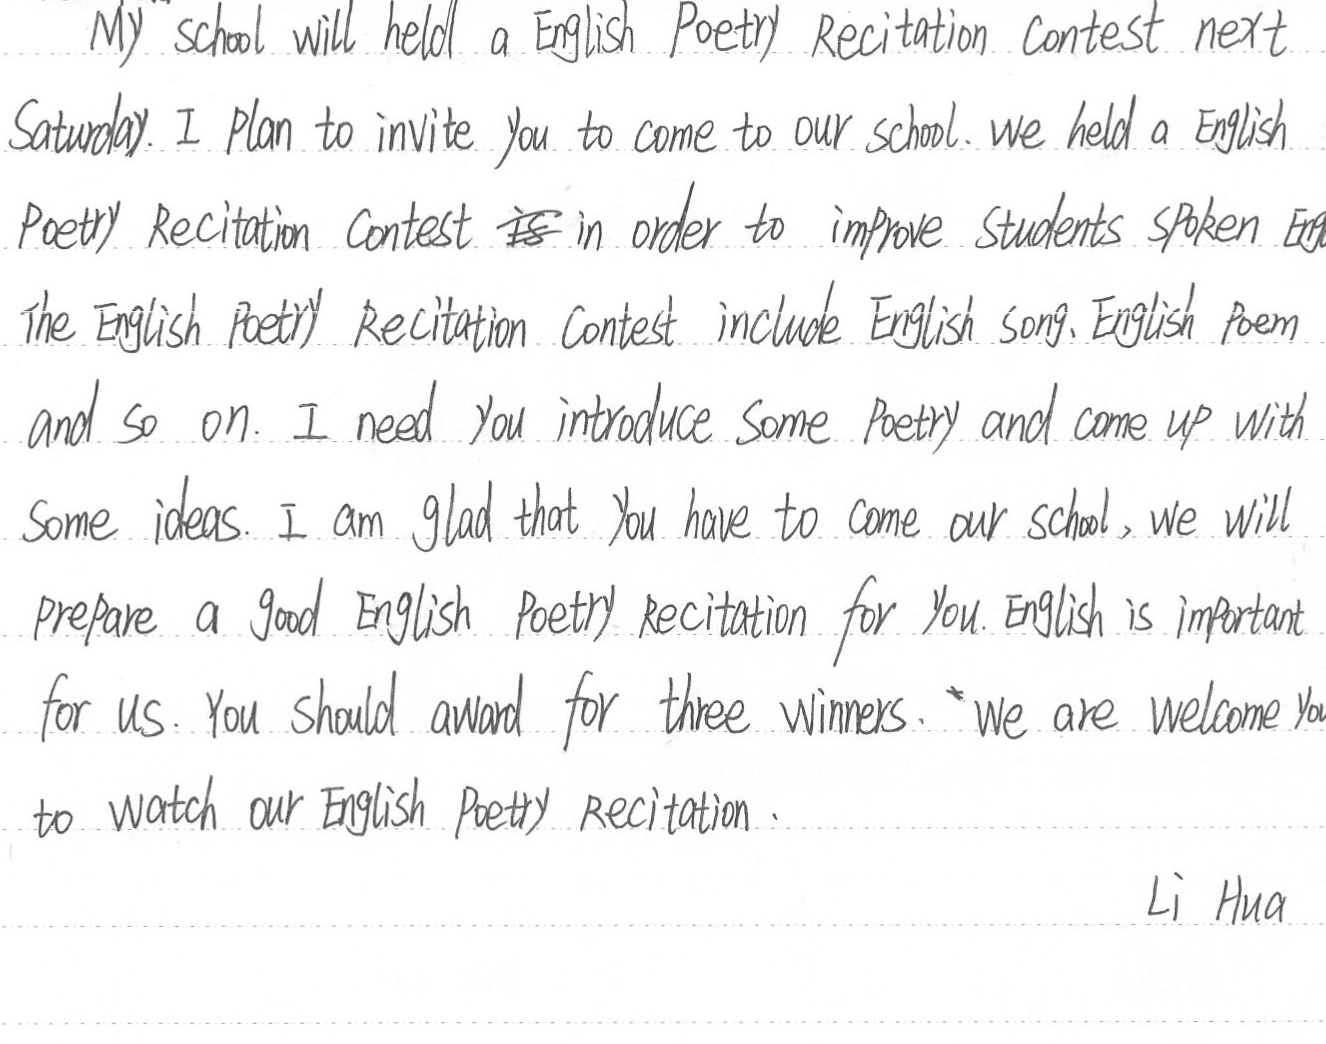 My school will held a English Poetry Recitation Contest next
Saturday. I plan to invite you to come to our school. We held a English
Poetry Recitation Contest in order to improve students spoken Eng
The English Poetry Recitation Contest include English song. English poem
and so on. I need you introduce some poetry and come up with
some ideas. I am glad that you have to come our school, we will
prepare a good English Poetry Recitation for you. English is important
for us. You should award for three winners. We are welcome you
to watch our English Poetry Recitation.
Li Hua